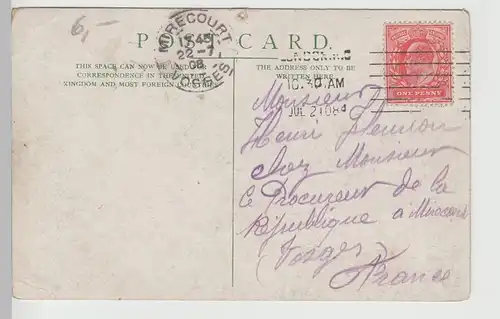 6,-
POST CARD.
MIRECOURT
1545
22-7
08
VOSGES
THIS SPACE CAN NOW BE USED FOR
CORRESPONDENCE IN THE UNITED
KINGDOM AND MOST FOREIGN COUNTRIES
THE ADDRESS ONLY TO BE
WRITTEN HERE
LONDON
10.30 AM
JUL 21 08
ONE PENNY
Monsieur
Henri
chez Monsieur
le Procureur de la
République à Mirecourt
(Vosges)
France